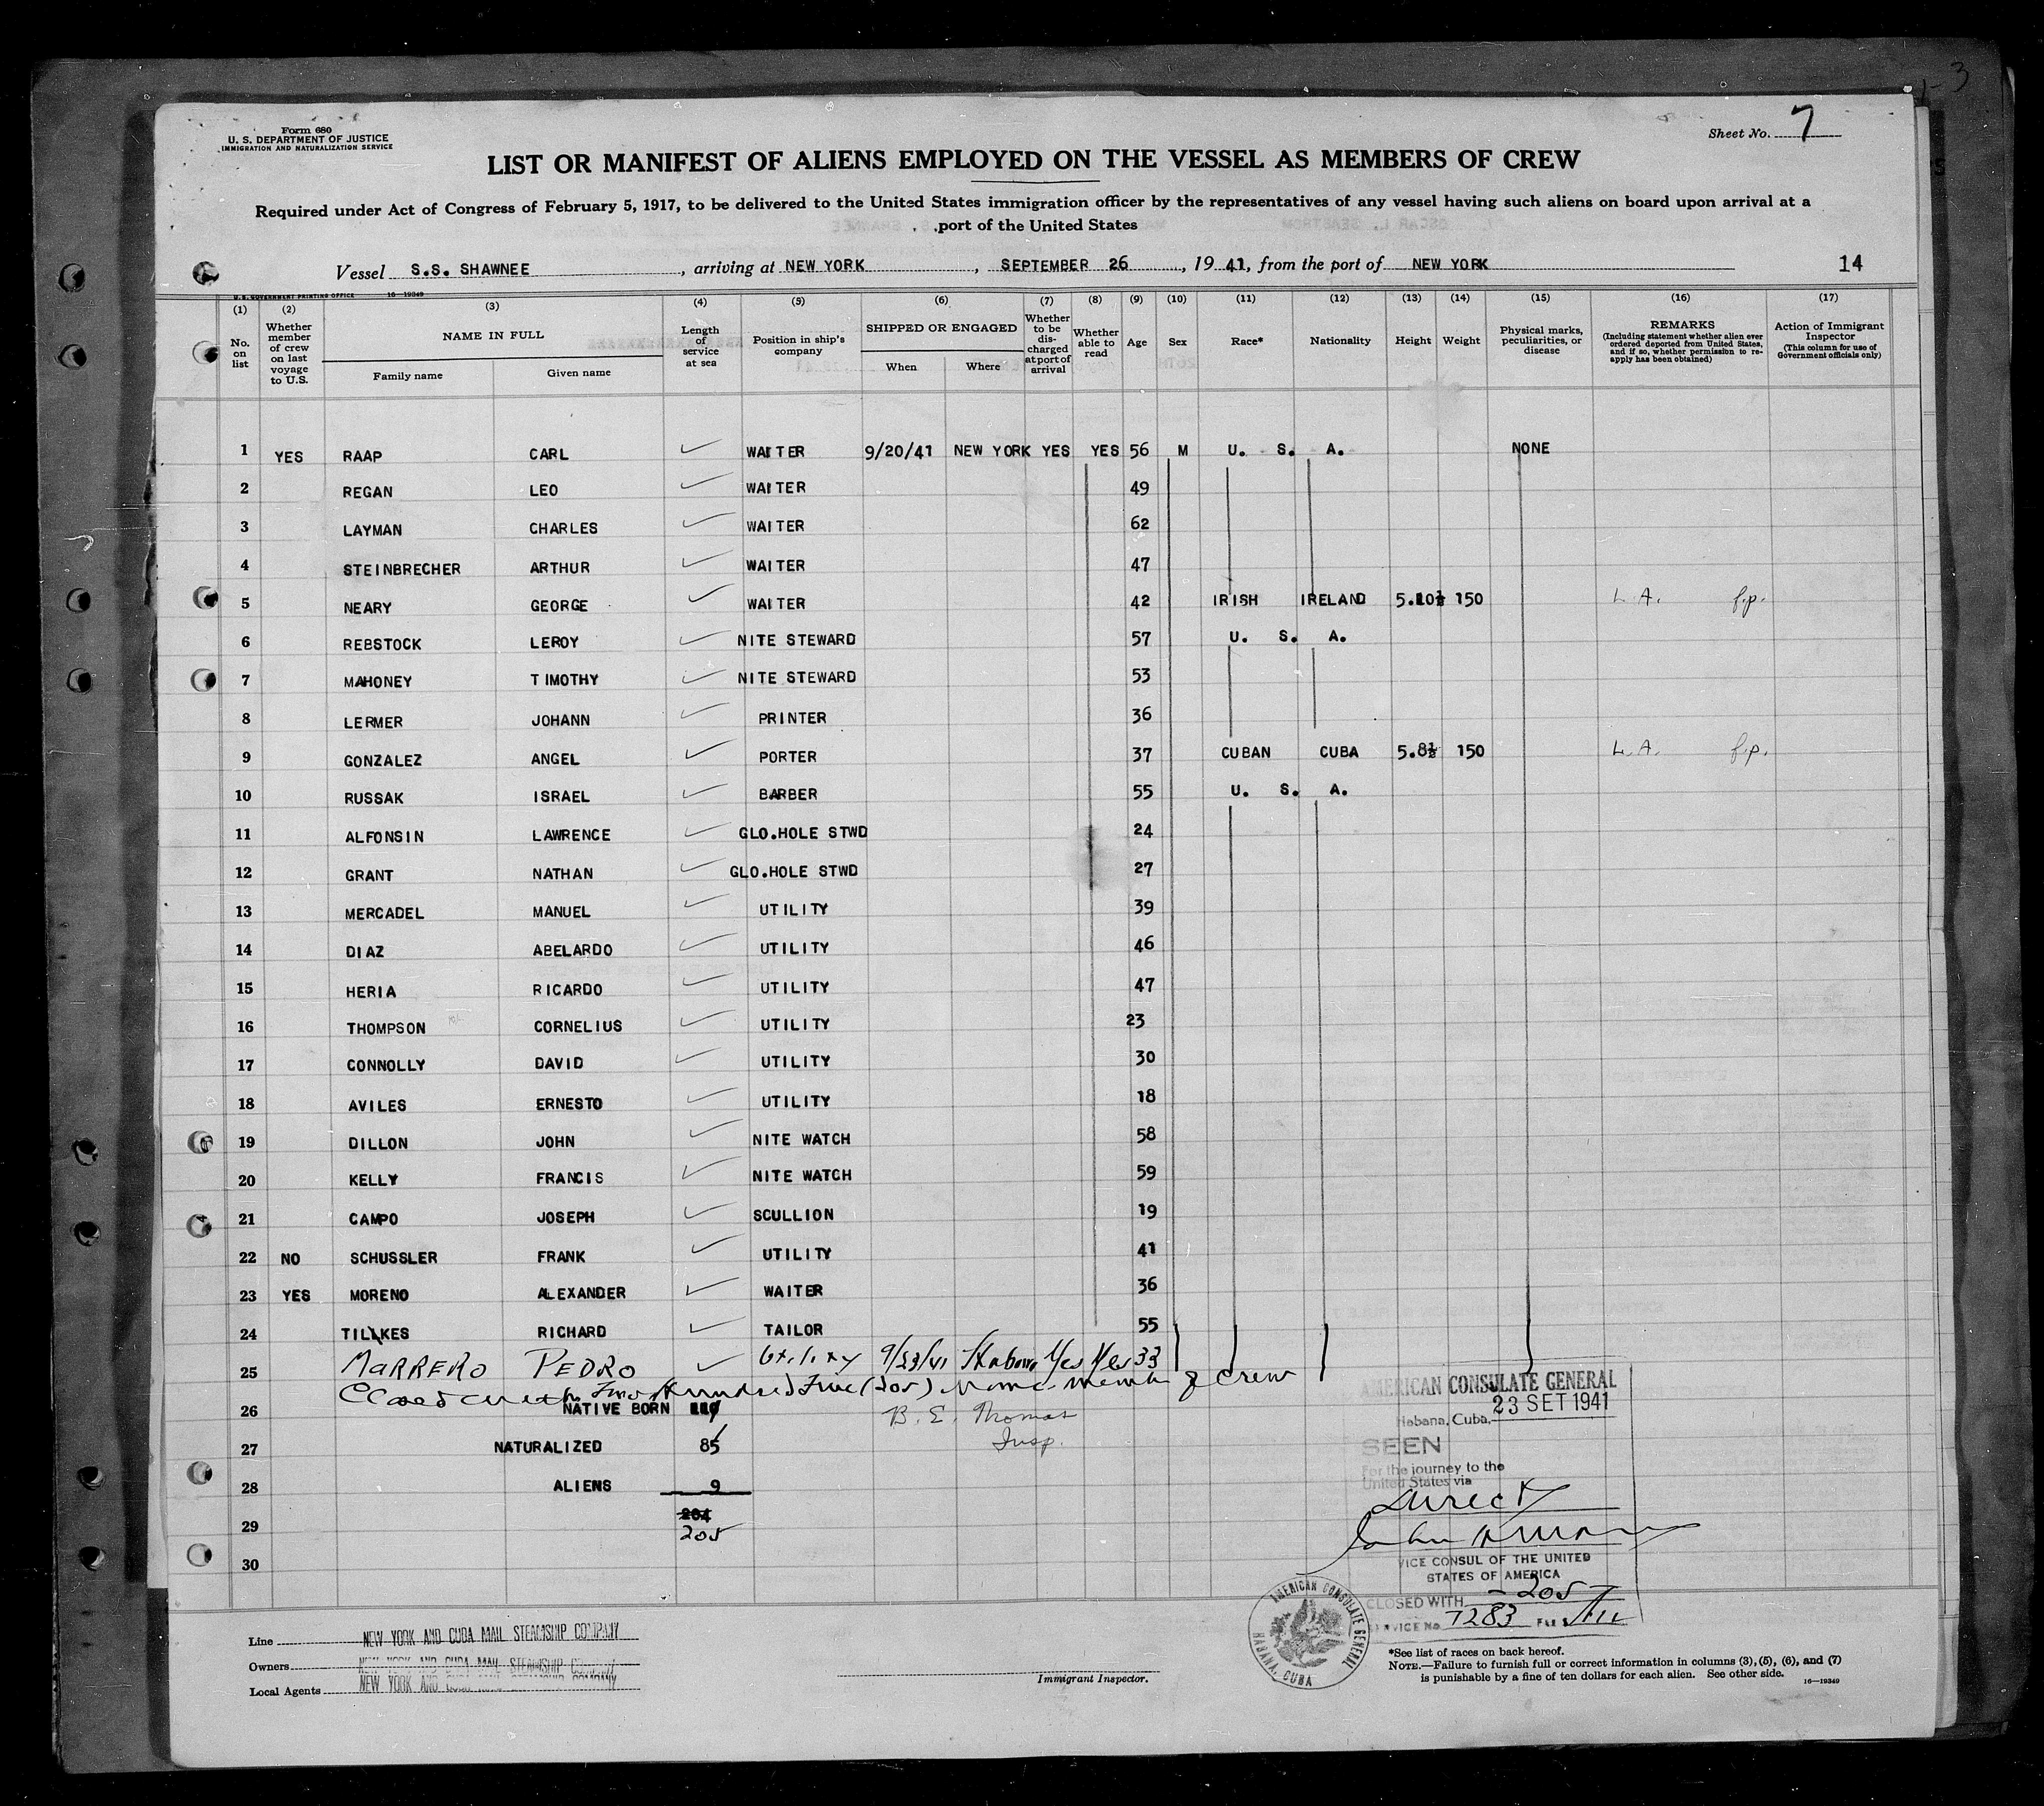 Form 680
U. S. DEPARTMENT OF JUSTICE
IMMIGRATION AND NATURALIZATION SERVICE
Sheet No. 7
LIST OR MANIFEST OF ALIENS EMPLOYED ON THE VESSEL AS MEMBERS OF CREW
Required under Act of Congress of February 5, 1917, to be delivered to the United States immigration officer by the representatives of any vessel having such aliens on board upon arrival at a
port of the United States
Vessel S.S. SHAWNEE, arriving at NEW YORK, SEPTEMBER 26, 19 41, from the port of NEW YORK 14
U.S. GOVERNMENT PRINTING OFFICE 16—19349
(1) (2) (3) (4) (5) (6) (7) (8) (9) (10) (11) (12) (13) (14) (15) (16) (17)
No. on list
Whether member of crew on last voyage to U.S.
NAME IN FULL
Family name Given name
Length of service at sea
Position in ship's company
SHIPPED OR ENGAGED
When Where
Whether to be discharged at port of arrival
Whether able to read
Age
Sex
Race*
Nationality
Height
Weight
Physical marks, peculiarities, or disease
REMARKS
(Including statement whether alien ever ordered deported from United States, and if so, whether permission to re-apply has been obtained)
Action of Immigrant Inspector
(This column for use of Government officials only)
1 YES RAAP CARL WAITER 9/20/41 NEW YORK YES YES 56 M U. S. A. NONE
2 REGAN LEO WAITER 49
3 LAYMAN CHARLES WAITER 62
4 STEINBRECHER ARTHUR WAITER 47
5 NEARY GEORGE WAITER 42 IRISH IRELAND 5.10½ 150 L.A. f.p.
6 REBSTOCK LEROY NITE STEWARD 57 U. S. A.
7 MAHONEY TIMOTHY NITE STEWARD 53
8 LERMER JOHANN PRINTER 36
9 GONZALEZ ANGEL PORTER 37 CUBAN CUBA 5.8½ 150 L.A. f.p.
10 RUSSAK ISRAEL BARBER 55 U. S. A.
11 ALFONSIN LAWRENCE GLO.HOLE STWD 24
12 GRANT NATHAN GLO.HOLE STWD 27
13 MERCADEL MANUEL UTILITY 39
14 DIAZ ABELARDO UTILITY 46
15 HERIA RICARDO UTILITY 47
16 THOMPSON CORNELIUS UTILITY 23
17 CONNOLLY DAVID UTILITY 30
18 AVILES ERNESTO UTILITY 18
19 DILLON JOHN NITE WATCH 58
20 KELLY FRANCIS NITE WATCH 59
21 CAMPO JOSEPH SCULLION 19
22 NO SCHUSSLER FRANK UTILITY 41
23 YES MORENO ALEXANDER WAITER 36
24 TILLKES RICHARD TAILOR 55
25 MARRERO PEDRO Utility 9/23/41 Habana Yes Yes 33
Closed with Two Hundred Five (205) Members of Crew
26 NATIVE BORN B. E. Thomas
27 NATURALIZED 85 Insp.
28 ALIENS 9
29 204
205
30
AMERICAN CONSULATE GENERAL
Habana, Cuba, 23 SET 1941
SEEN
For the journey to the
United States via
Direct
VICE CONSUL OF THE UNITED
STATES OF AMERICA
CLOSED WITH 205
SERVICE No. 7283
AMERICAN CONSULATE GENERAL HABANA, CUBA
Line NEW YORK AND CUBA MAIL STEAMSHIP COMPANY
Owners NEW YORK AND CUBA MAIL STEAMSHIP COMPANY
Local Agents NEW YORK AND CUBA MAIL STEAMSHIP COMPANY
Immigrant Inspector.
*See list of races on back hereof.
NOTE.—Failure to furnish full or correct information in columns (3), (5), (6), and (7)
is punishable by a fine of ten dollars for each alien. See other side.
16—19349